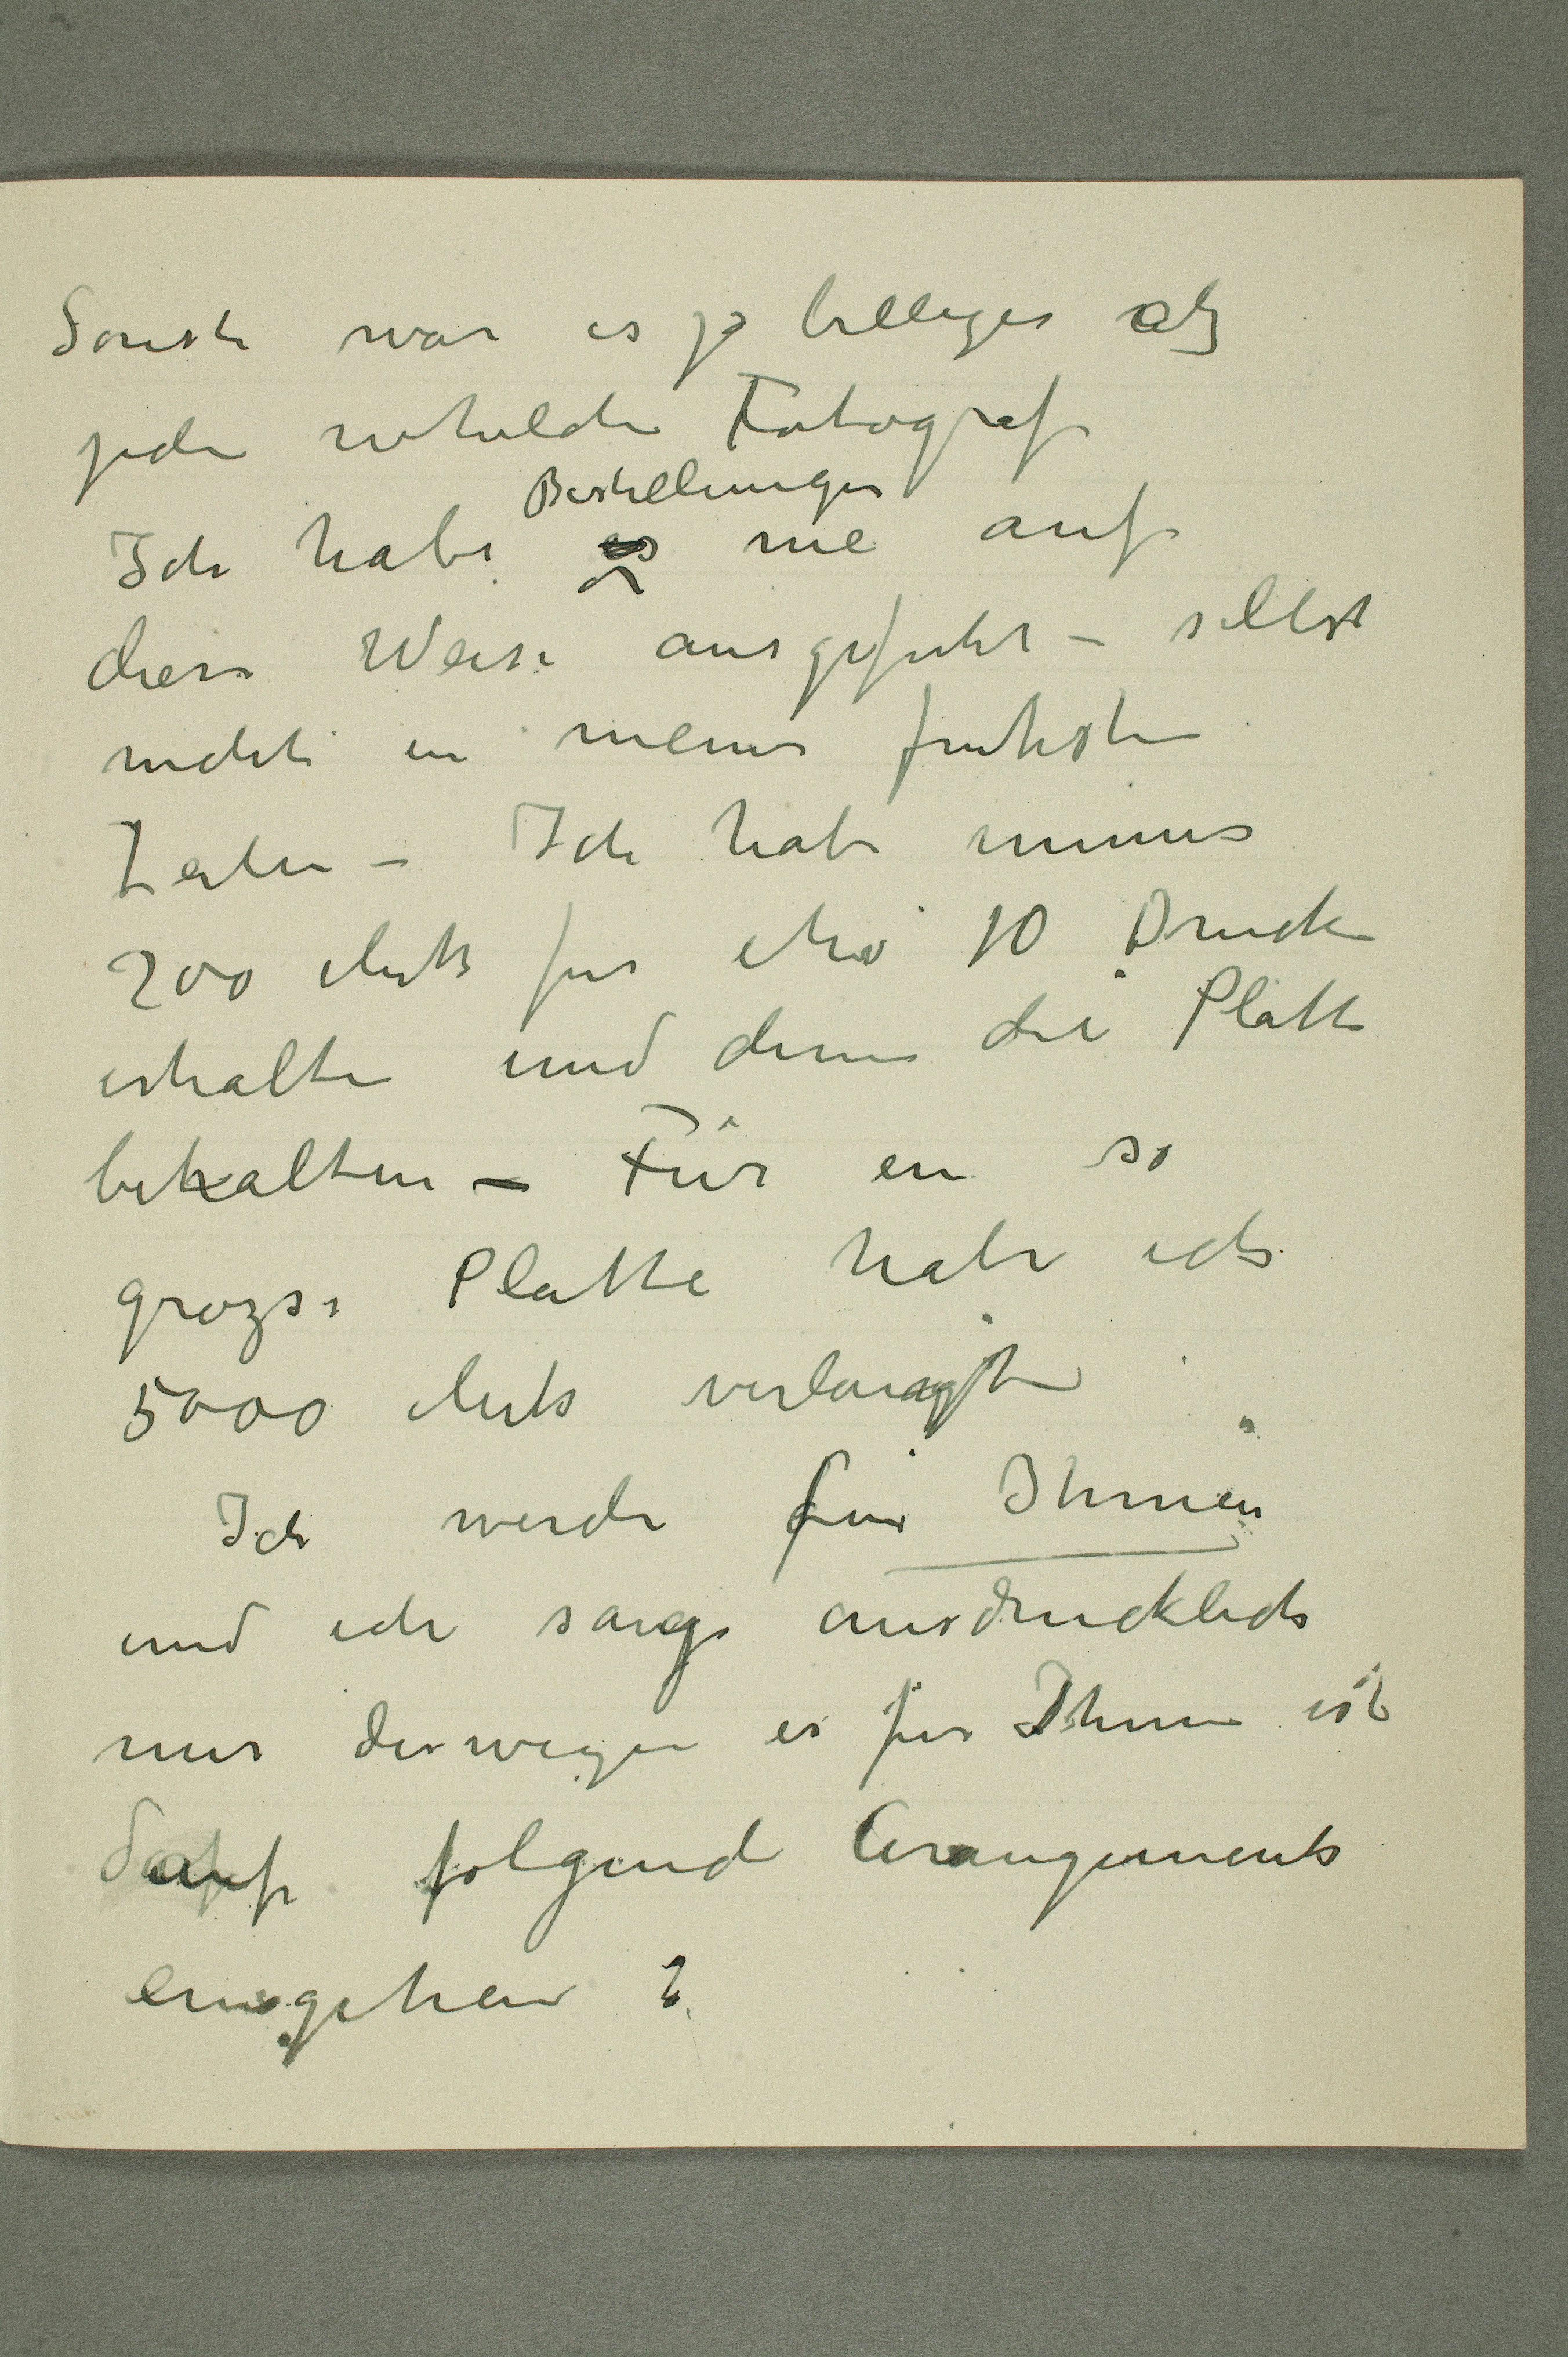 Sonst war es ja billiger als
jeder Fotograf
Bestellungen
Ich habe es nie auf
diese Weise ausgefuhrt – selbst
nicht in meiner fruhsten
Zeiten – Ich habe immer
200 Mark fur etwa 10 Drucke
erhalten und denn die Platte
behalten – Für en so
grozse Platte habe ich
5000 Mark verlangt
Ich werde fur Ihnen
und ich sage ausdrucklich
nur deswegen es fur Ihnen ist
auf folgend Arangements
eingehen ?